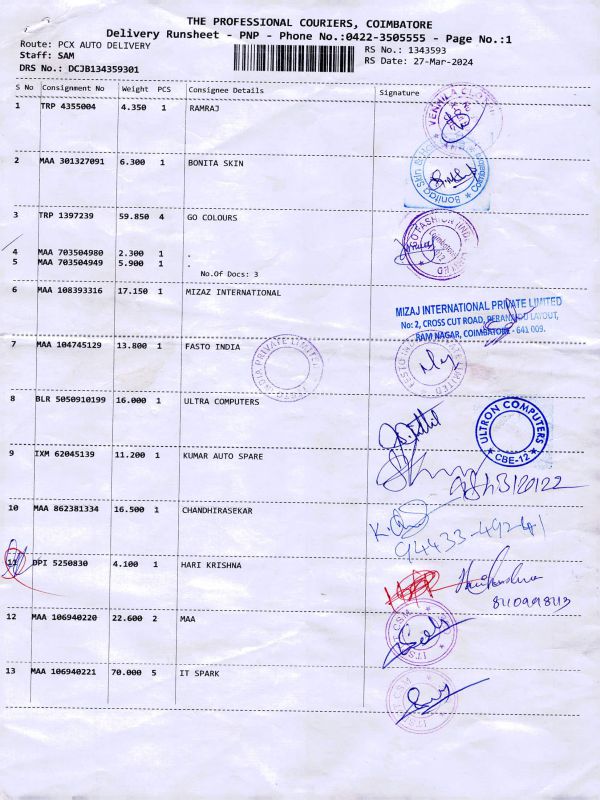 THE PROFESSIONAL COURIERS, COIMBATORE
Delivery Runsheet - PNP - Phone No.:0422-3505555 - Page No.:1
Route: PCX AUTO DELIVERY RS No.: 1343593
Staff: SAM RS Date: 27-Mar-2024
DRS No.: DCJB134359301
S No Consignment No Weight PCS Consignee Details Signature
1 TRP 4355004 4.350 1 RAMRAJ
2 MAA 301327091 6.300 1 BONITA SKIN
3 TRP 1397239 59.850 4 GO COLOURS
4 MAA 703504980 2.300 1 .
5 MAA 703504949 5.900 1 .
No.Of Docs: 3
6 MAA 108393316 17.150 1 MIZAZ INTERNATIONAL
MIZAJ INTERNATIONAL PRIVATE LIMITED
No: 2, CROSS CUT ROAD, LAYOUT,
RAM NAGAR, COIMBATORE - 641 009.
7 MAA 104745129 13.800 1 FASTO INDIA
8 BLR 5050910199 16.000 1 ULTRA COMPUTERS
ULTRON COMPUTERS
CBE-12
9 IXM 62045139 11.200 1 KUMAR AUTO SPARE
10 MAA 862381334 16.500 1 CHANDHIRASEKAR
94433-49241
11 DPI 5250830 4.100 1 HARI KRISHNA
8110998113
12 MAA 106940220 22.600 2 MAA
13 MAA 106940221 70.000 5 IT SPARK